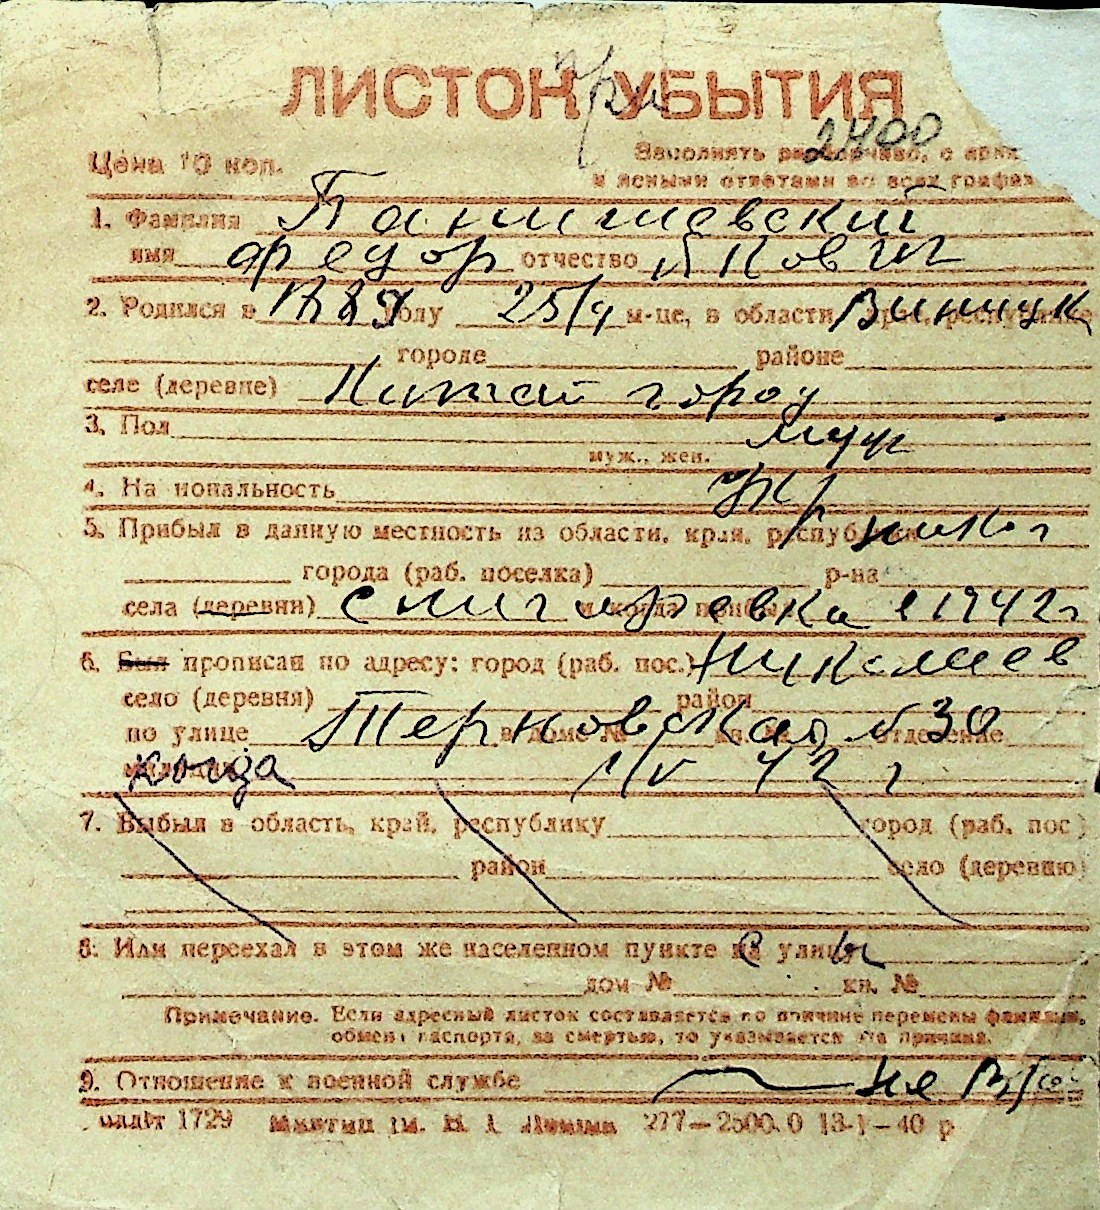 ЛИСТОК УБЫТИЯ
при
2400
Цена 10 коп.
Заполнять разборчиво, с
и ясными ответами во всех графах
1. Фамилия Панишевский
имя Федор отчество Якович
2. Родился в 1889 году 25/4 м-це, в области Винницк
городе районе
селе (деревне) Китай город
3. Пол муж
муж., жен.
4. Национальность укр
5. Прибыл в данную местность из области, края, республики Ник.
города (раб. поселка) р-на
села (деревни) Снигиревка и когда прибыл 1942 г
6. Был прописан по адресу: город (раб. пос.) Николаев
село (деревня) район
по улице Терновская в доме № 30 кв. № отделение
когда 42 г
7. Выбыл в область, край, республику город (раб. пос)
район село (деревню)
8. Или переехал в этом же населенном пункте на улицу
дом № кв. №
Примечание. Если адресный листок составляется по причине перемены фамилии,
обмена паспорта, за смертью, то указывается эта причина.
9. Отношение к военной службе не в/об
1729 277—2500.0 —40 р